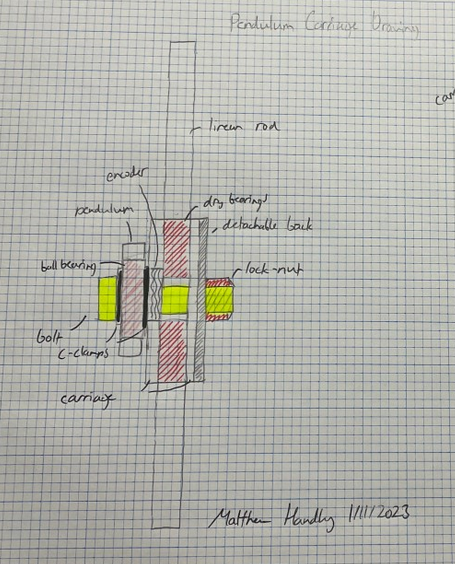 Pendulum Carriage Drawing
linear rod
encoder
pendulum
dry bearings
detachable back
ball bearing
lock-nut
bolt
C-clamps
carriage
Matthew Handly 1/11/2023